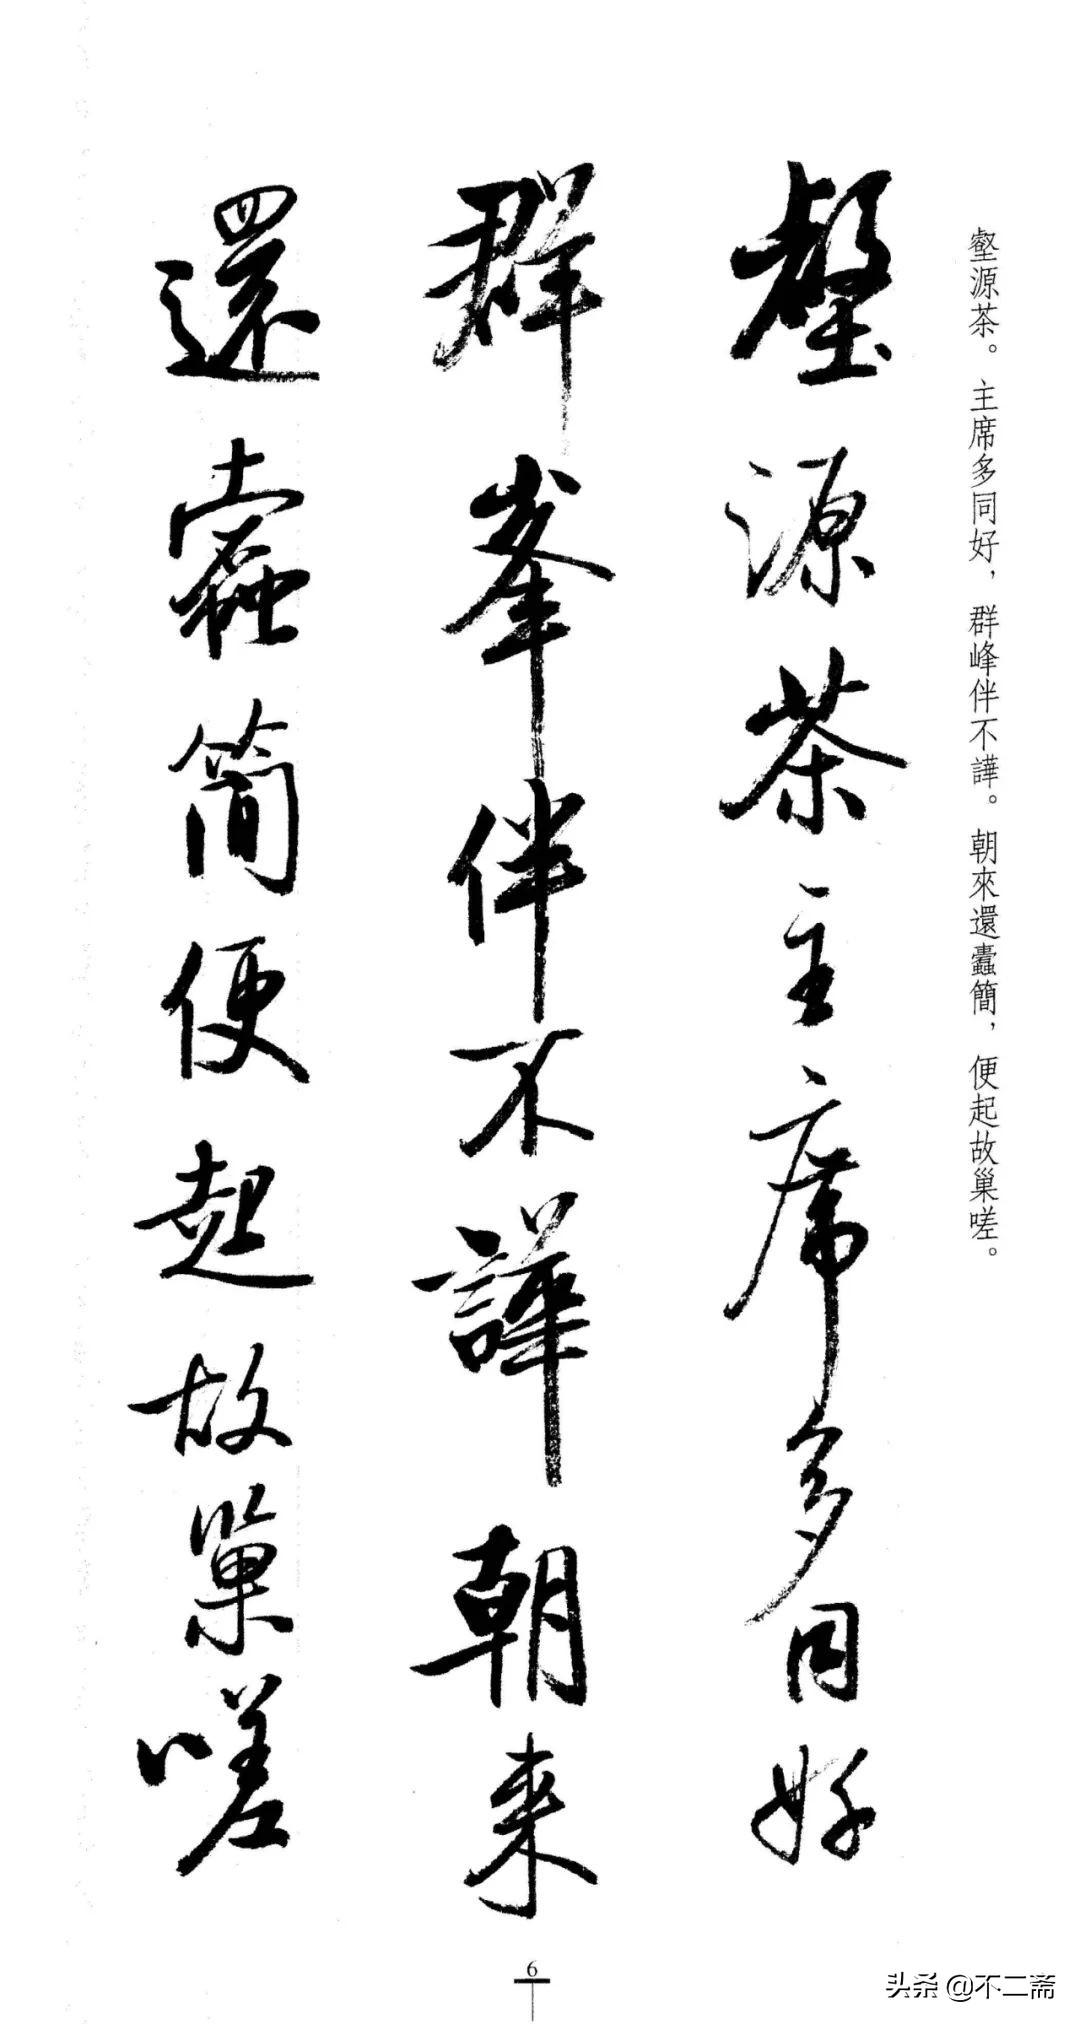 壑源茶。主席多同好，群峰伴不譁。朝來還蠹簡，便起故巢嗟。
壑源茶主席多同好
群峯伴不譁朝来
還蠹簡便起故巢嗟
6
头条 @不二斋